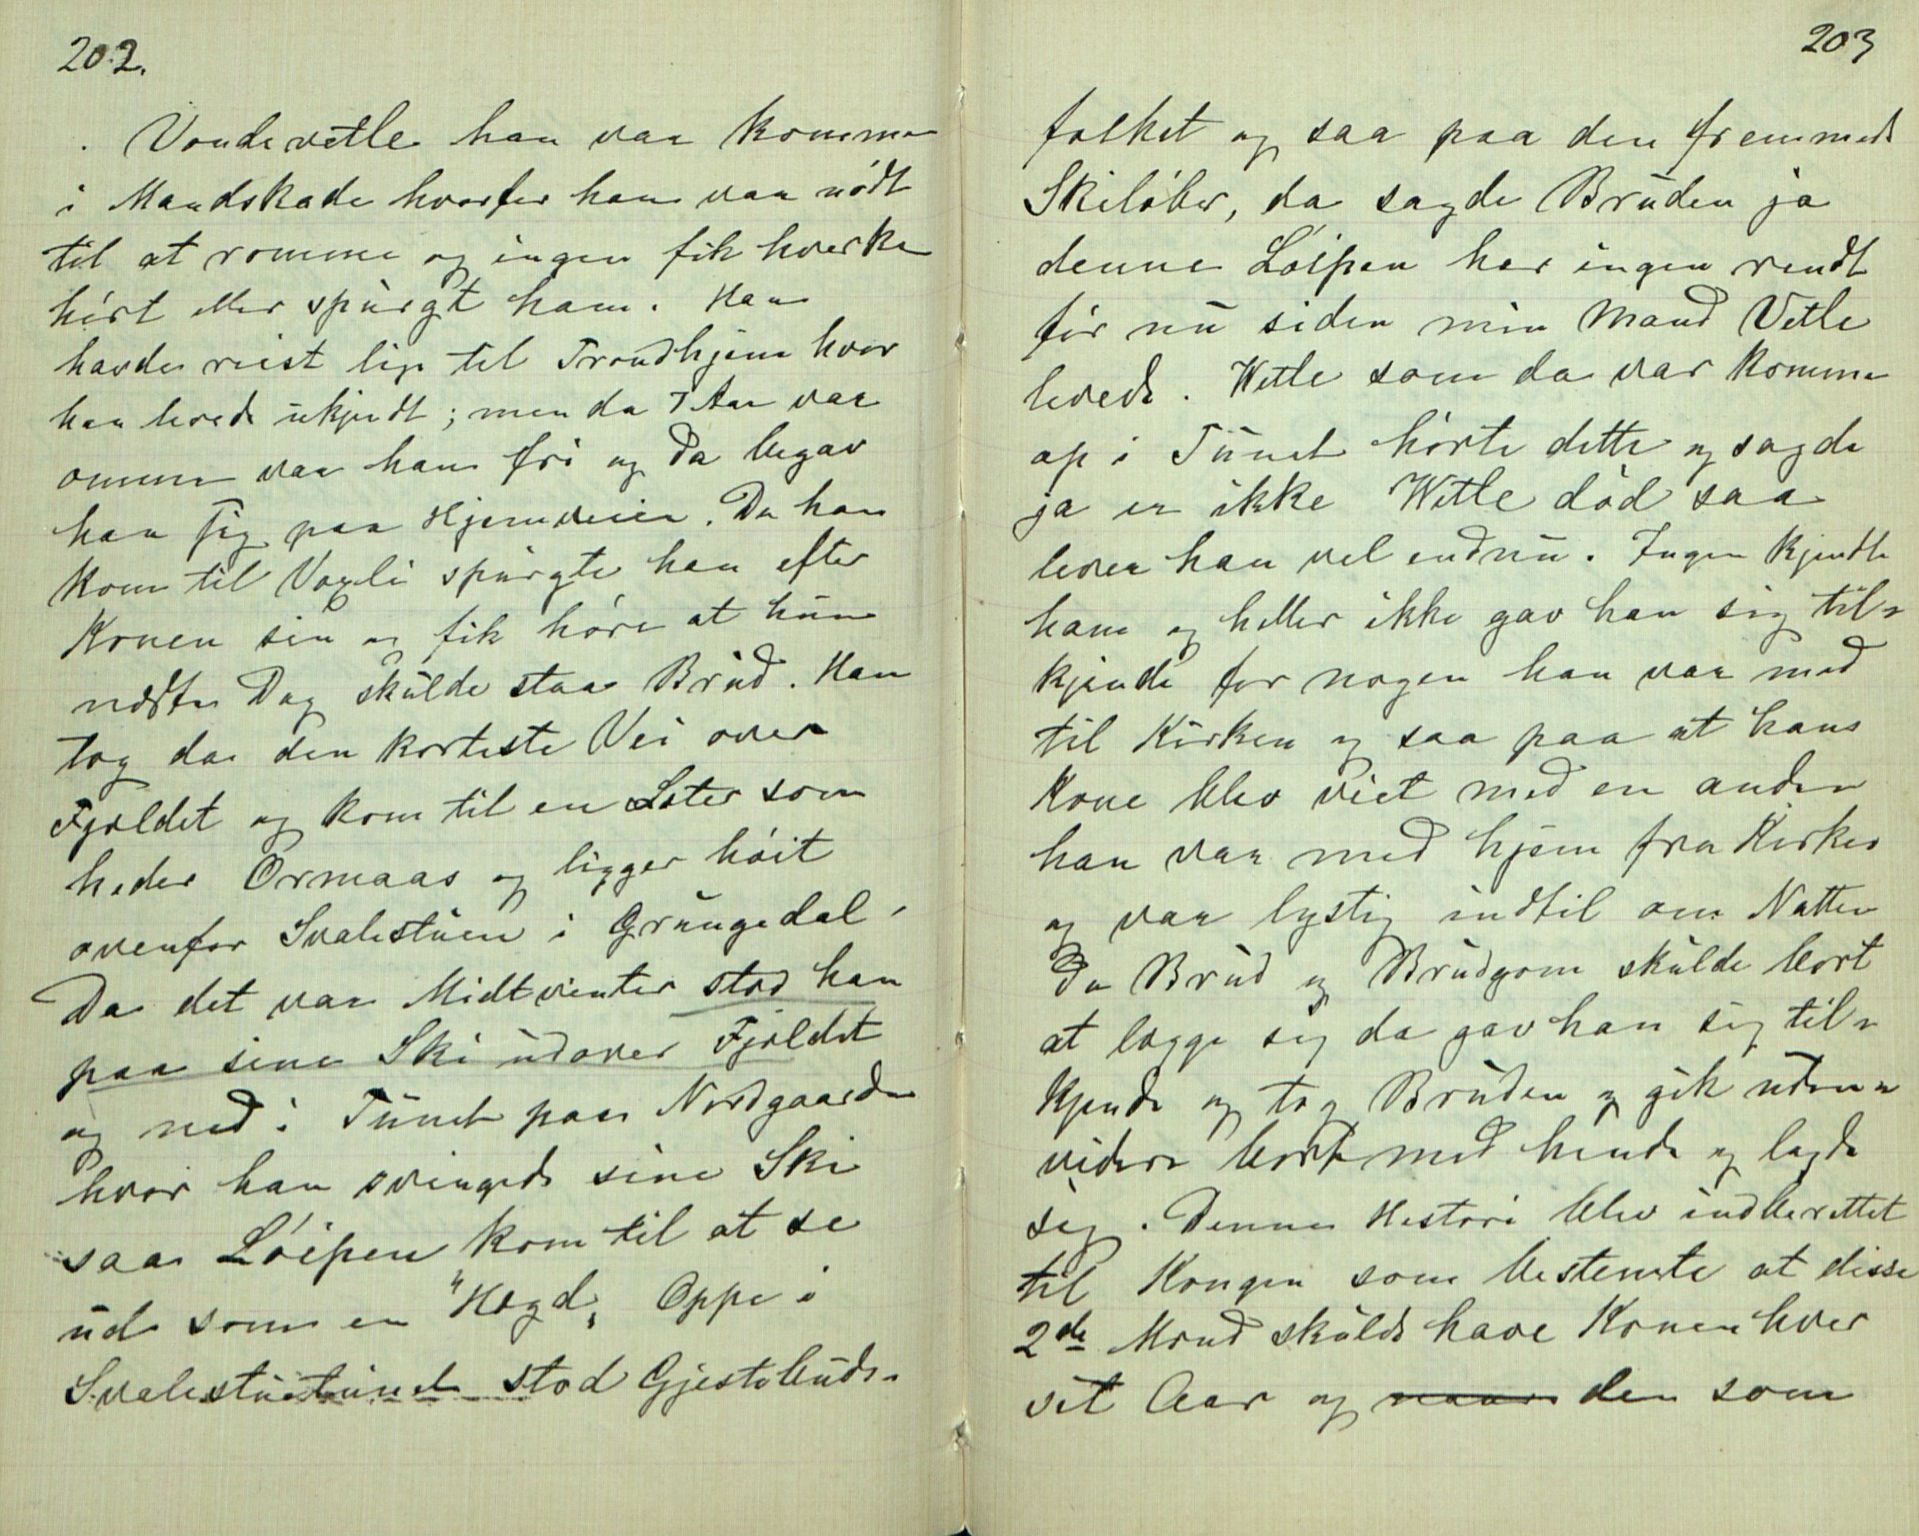 202.
Vondevetle han var komme
i Mandskade hvorfor han var nødt
til at romme og ingen fik hverken
hørt eller spurgt ham. Han
havde reist lige til Trondhjem hvor
han levede ukjendt; men da 7 Aar var
omme var han fri og da begav
han sig paa Hjemveien. Da han
kom til Vaxli spurgte han efter
Konen sin og fik høre at hun
næste Dag skulde staa Brud. Han
tog da den korteste Vei over
Fjeldet og kom til en Sæter som
heder Ormaas og ligger høit
ovenfor Svalestuen i Grungedal,
Da det var Midtvinter stod han
paa sine Ski udover Fjeldet
og ned i Tunet paa Nordgaarden
hvor han svingede sine Ski
saa Løipen kom til at se
ud som en "Høgd„ Oppe i
Svalestutunet stod Gjestebuds-
203
folket og saa paa den fremmede
Skiløber, da sagde Bruden ja
denne Løipen har ingen rendt
før nu siden min Mand Vetle
levede. Wetle som da var komme
op i Tunet hørte dette og sagde
ja er ikke Wetle død saa
lever han vel endnu. Ingen kjendte
ham og heller ikke gav han sig til-
kjende for nogen han var med
til Kirken og saa paa at hans
Kone blev viet med en anden
han var med hjem fra Kirken
og var lystig indtil om Natten
da Brud og Brudgom skulde bort
at lægge sig da gav han sig til-
kjende og tog Bruden og gik uden
videre bort med hende og lagde
sig. Denne Histori blev indberettet
til Kongen som bestemte at disse
2de Mænd skulde have Konen hver
sit Aar og naar den som